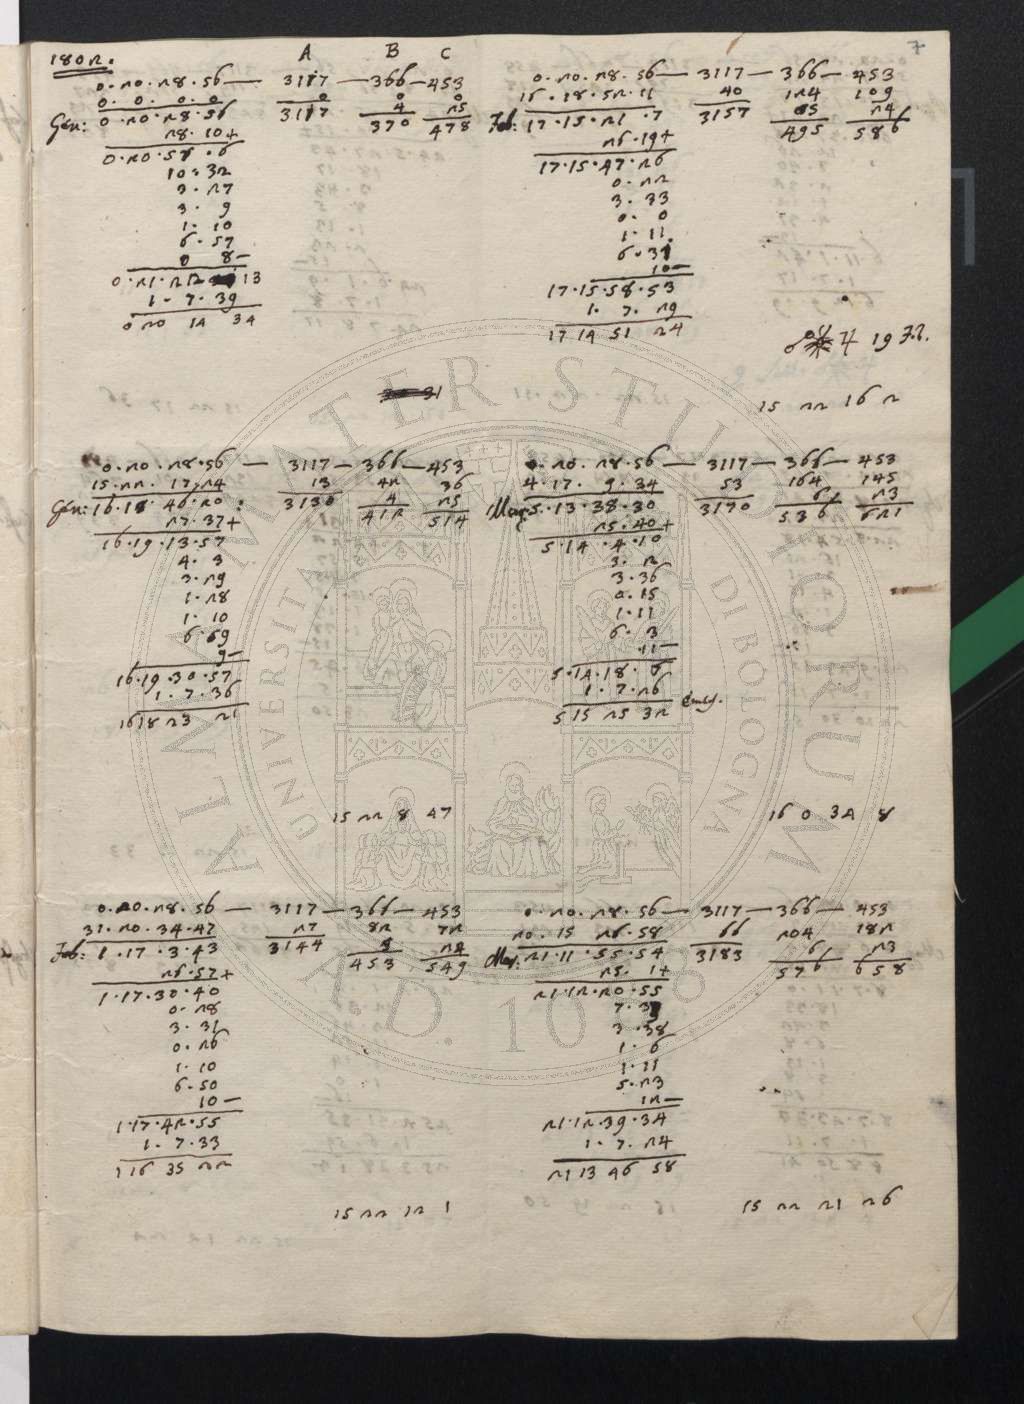 7
1802.
A B C
0.20.28.56 — 3117 — 366 — 453
0. 0. 0. 0 0 0 0
Gen: 0.20.28.56 3117 4 25
370 478
28.10+
0.20.57.6
10.32
3.27
3. 9
1.10
6.57
0 8—
0.21.22 13
1. 7.39
0 20 14 34
0.20.28.56 — 3117 — 366 — 453
16.18.52.11 40 124 109
Feb: 17.15.21.7 3157 05 24
495 586
26.19+
17.15.47.26
0.22
3.33
0. 0
1.11
6.31
10—
17.15.58.53
1. 7.29
17 14 51 24
♃ 19 F.
15 22 16 2
0.20.28.56 — 3117 — 366 — 453
15.22.17.24 13 42 36
Gen: 16.18.46.20 3130 4 25
412 514
27.37+
16.19.13.57
4. 3
3.29
1.28
1.10
6.59
9—
16.19.30.57
1.7.36
16 18 23 21
15 22 8 47
0.20.28.56 — 3117 — 366 — 453
4.17. 9.34 53 164 145
Mar: 5.13.38.30 3170 6 23
536 621
25.40+
5.14.4.10
3. 2
3.36
0.15
1.11
6. 3
11—
5.14.18. 6
1.7.26
5 15 25 32
16 0 34 8
0.20.28.56 — 3117 — 366 — 453
31.20.34.47 27 82 72
Feb: 1.17.3.43 3144 4 24
453 549
26.57+
1.17.30.40
0.28
3.31
0.26
1.10
6.50
10—
1.17.42.55
1. 7.33
1 16 35 22
15 22 12 1
0.20.28.56 — 3117 — 366 — 453
20.15 26.58 66 204 182
Mar: 21.11.55.54 3183 6 23
576 658
25. 1+
21.12.20.55
3.38
1. 6
1.11
5.23
12—
21.12.39.34
1. 7.24
21 13 46 58
15 22 21 26
ALMA MATER STUDIORUM
UNIVERSITÀ DI BOLOGNA
A.D. 1088